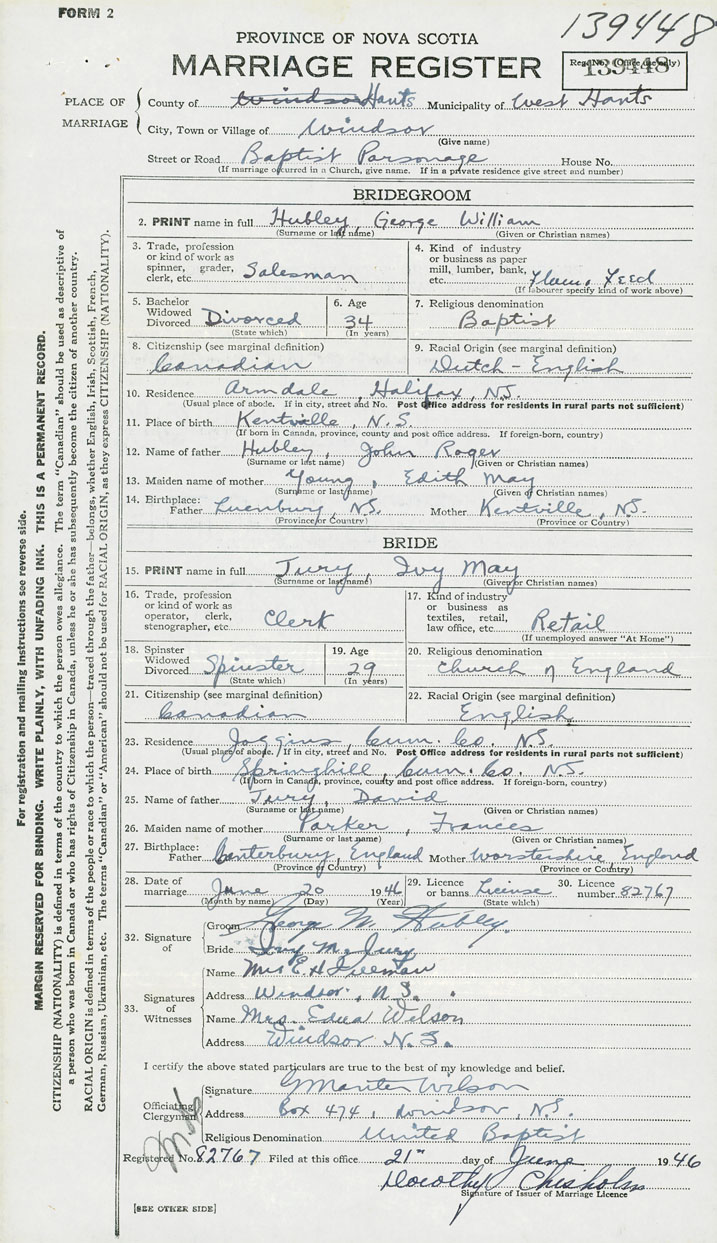 FORM 2
139448
PROVINCE OF NOVA SCOTIA
MARRIAGE REGISTER
Reg. No. (Office use only)
139448
PLACE OF MARRIAGE
County of Windsor Hants Municipality of West Hants
City, Town or Village of Windsor
(Give name)
Street or Road Baptist Parsonage House No.
(If marriage occurred in a Church, give name. If in a private residence give street and number)
BRIDEGROOM
2. PRINT name in full Hubley, George William
(Surname or last name) (Given or Christian names)
3. Trade, profession or kind of work as spinner, grader, clerk, etc. Salesman
4. Kind of industry or business as paper mill, lumber, bank, etc. Flour, Feed
(If labourer specify kind of work above)
5. Bachelor Widowed Divorced Divorced
(State which)
6. Age 34
(In years)
7. Religious denomination
Baptist
8. Citizenship (see marginal definition)
Canadian
9. Racial Origin (see marginal definition)
Dutch - English
10. Residence Armdale, Halifax, N.S.
(Usual place of abode. If in city, street and No. Post Office address for residents in rural parts not sufficient)
11. Place of birth Kentville, N.S.
(If born in Canada, province, county and post office address. If foreign-born, country)
12. Name of father Hubley, John Roger
(Surname or last name) (Given or Christian names)
13. Maiden name of mother Young, Edith May
(Surname or last name) (Given or Christian names)
14. Birthplace: Father Luenburg, N.S. Mother Kentville, N.S.
(Province or Country) (Province or Country)
BRIDE
15. PRINT name in full Jury, Ivy May
(Surname or last name) (Given or Christian names)
16. Trade, profession or kind of work as operator, clerk, stenographer, etc. Clerk
17. Kind of industry or business as textiles, retail, law office, etc. Retail
(If unemployed answer "At Home")
18. Spinster Widowed Divorced Spinster
(State which)
19. Age 29
(In years)
20. Religious denomination
Church of England
21. Citizenship (see marginal definition)
Canadian
22. Racial Origin (see marginal definition)
English
23. Residence Joggins, Cum. Co, N.S.
(Usual place of abode. If in city, street and No. Post Office address for residents in rural parts not sufficient)
24. Place of birth Springhill, Cum. Co. N.S.
(If born in Canada, province, county and post office address. If foreign-born, country)
25. Name of father Jury, David
(Surname or last name) (Given or Christian names)
26. Maiden name of mother Parker, Frances
(Surname or last name) (Given or Christian names)
27. Birthplace: Father Canterbury, England Mother Worstershire, England
(Province or Country) (Province or Country)
28. Date of marriage June 20 1946
(Month by name) (Day) (Year)
29. Licence or banns License
(State which)
30. Licence number 82767
32. Signature of
Groom George W. Hubley.
Bride Ivy M. Jury
33. Signatures of Witnesses
Name Mrs E. H Freeman
Address Windsor, N.S.
Name Mrs. Edna Wilson
Address Windsor N.S.
I certify the above stated particulars are true to the best of my knowledge and belief.
Officiating Clergyman
Signature Wilson
Address Box 474, Windsor, N.S.
Religious Denomination United Baptist
Registered No. 82767 Filed at this office 21st day of June 1946
Dorothy Chisholm
Signature of Issuer of Marriage Licence
[SEE OTHER SIDE]
For registration and mailing instructions see reverse side.
MARGIN RESERVED FOR BINDING. WRITE PLAINLY, WITH UNFADING INK. THIS IS A PERMANENT RECORD.
CITIZENSHIP (NATIONALITY) is defined in terms of the country to which the person owes allegiance. The term "Canadian" should be used as descriptive of
a person who was born in Canada or who has rights of Citizenship in Canada, unless he or she has subsequently become the citizen of another country.
RACIAL ORIGIN is defined in terms of the people or race to which the person—traced through the father—belongs, whether English, Irish, Scottish, French,
German, Russian, Ukrainian, etc. The terms "Canadian" or "American" should not be used for RACIAL ORIGIN, as they express CITIZENSHIP (NATIONALITY).